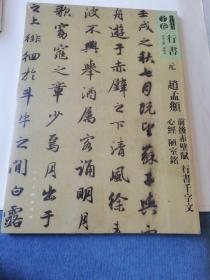 行書
元
趙孟頫
前後赤壁賦 行書千字文
心經 陋室銘
壬戌之秋七月既望蘇子與
遊于赤壁之下清風徐
波不興舉酒屬客誦明月
歌窈窕之章少焉月出
山之上徘徊於斗牛之間白露